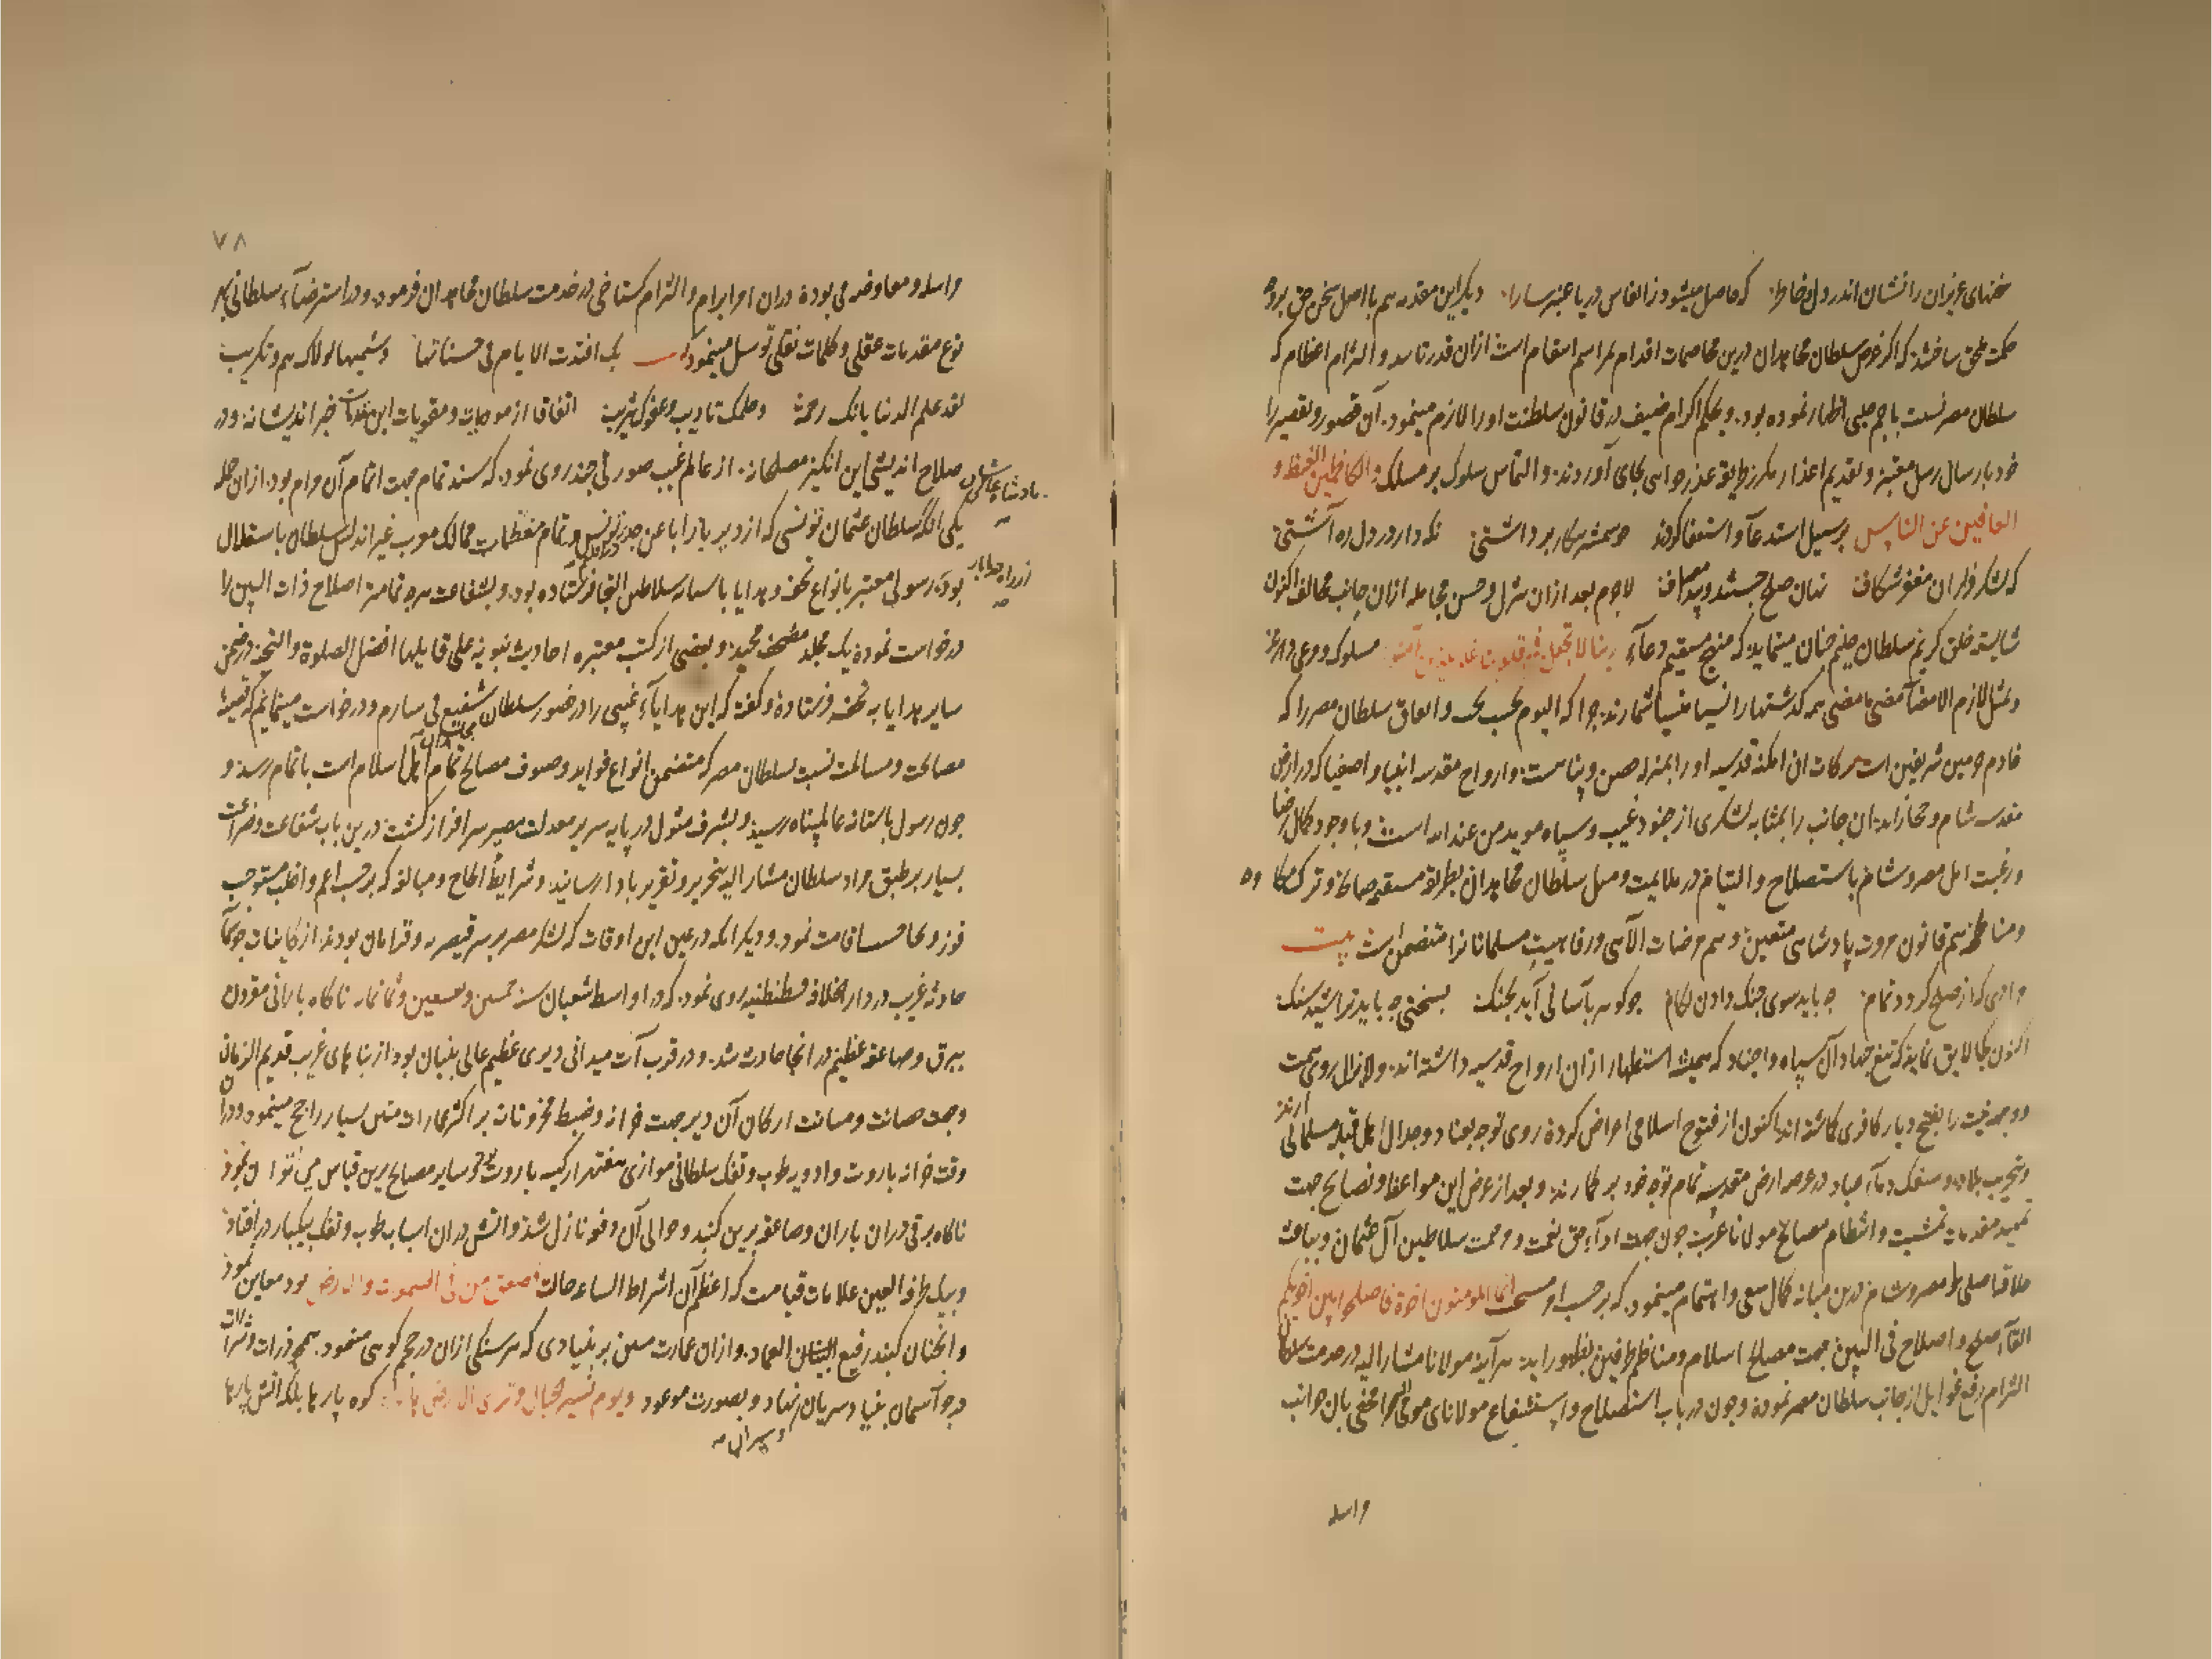 سخنهای عزیزان را نشان اندر دل خاطر که حاصل میشود ز انفاس دریا عنبر سارا دیگر این مقدمه هم با اصل سخن حق بوده
حکمت ملحق ساختند که اگر غرض سلطان مجاهدان درین مخاصمات اقدام بمراسم انتقام است ازان قدر تاسد و التزام اعظام که
سلطان مصر نسبت باجم جلبی اظهار نموده بود و بحکم اکرام ضیف در قانون سلطنت او را لازم مینمود آن قصور و تقصیر را
خود بارسال رسل معتبر و تقدیم اعذار مکرر طریق عذرخواهی بجای آوردند و التماس سلوک بر مسلک الکاظمین الغیظ و
العافین عن الناس بر سبیل استدعآ و استعفا کردند چو شمشیر پیکار برداشتی نکه دار در دل ره آشتی
که لشکر فران مغفر شکاف نهان صلح جستند و پیدا مصاف لاجرم بعد ازان تنزل و حسن مجامله ازان جانب مخالف اکنون
شایسته خلق کریم سلطان حلیم چنان مینماید که منهج مستقیم دعآء ربنا لا تجعل فی قلوبنا غلا للذین آمنوا مسلوک و مرعی دارند
و بمثل لازم الامضآء مضی ما مضی همه گذشتها را نسیا منسیا شمارند چرا که الیوم بحسب بخت و اتفاق سلطان مصر را که
خادم حرمین شریفین است برکات ان امکنه قدسیه او را بمنزله حصن و پناهست و ارواح مقدسه انبیا و اصفیا که در ارض
مقدسه شام و حجازاند ان جانب را بمثابه لشکری از جنود غیب و سپاه موید من عند الله است و با وجود کمال رضا
و رغبت اهل مصر و شام باستصلاح و التیام در ملایمت و میل سلطان مجاهدان بطریقه مستقیم مصالحه و ترک مکاوحه
و مناطحه هم قانون مروت پادشاهی متعین و هم مرضات الآهی و رفاهیت مسلمانانرا متضمن است بیت
مرادی که از صلح گردد تمام چه باید سوی جنگ دادن لگام چو گوهر بآسانی آید بچنگ بسختی چه باید تراشید سنگ
اکنون کجا لایق نماید که تیغ جهاد آن سپاه و اجناد که همیشه استظهار ازان ارواح قدسیه داشته‌اند و لا یزال روی همت
و وجهه نیت را بفتح دیار کافری گماشته‌اند اکنون از فتوح اسلامی اعراض کرده روی توجه بعناد و جدال اهل قبله مسلمانی آرند
و تخریب بلاد و سفک دمآء عباد در عرصه ارض مقدسه تمام توجه خود بر گمارند و بعد از عرض این مواعظ و نصایح جهت
تمهید مقدمات تمشیت و انتظام مصالح مولانا عرب چون جهت ادآء حق نعمت و مرحمت سلاطین آل عثمان و بباعث
علاقه اصلی با مصر و شام درین میانه کمال سعی و اهتمام مینمود که بر حسب امر مستحب انما المؤمنون اخوة فاصلحوا بین اخویکم
القآء صلح و اصلاح فی البین جهت مصالح اسلام و مناظم طرفین بظهور اید هرآینه مولانا مشار الیه در خدمت سلطان
التزام رفع غوایل از جانب سلطان مصر نموده و چون در باب استصلاح و استشفاع مولانای مومی الیه را مخفی بان جانب
مراسله
۷۸
مراسله و معاوضه می بوده دران امر ابرام و التزام گستاخی در خدمت سلطان مجاهدان فرمود و در استرضآء سلطانی بهر
نوع مقدمات عقلی و کلمات نقلی توسل مینمود که بک افتدت الایام فی حسناتها و شیمتها لولاک هم و تکریب
لقد علم الدنیا بانک رحمة و حلمک تادیب و عفوک یثرب اتفاقا از موجبات و مقویات این مقدمات خیر اندیشانه و در
صلاح اندیشی این انگیز مصلحانه از عالم غیب صورتی چند روی نمود که سند تمام جهت اتمام آن مرام بود ازان جمله
یکی انکه سلطان عثمان تونسی که از دیر باز ابا عن جد در تونس و تمام معظمات ممالک مغرب غیر اندلس سلطان باستقلال
بود رسولی معتبر بانواع تحف و هدایا باستانه سلاطین التجا فرستاده بود و بشفاعت هرچه تمامتر اصلاح ذات البین را
درخواست نموده یک مجلد مصحف مجید و بعضی از کتب معتبره احادیث نبویه علی قایلها افضل الصلوة و التحیة در ضمن
سایر هدایا به تحفه فرستاده و گفته که این هدایآء غیبی را در حضور سلطان شفیع می سازم و درخواست مینمایم که قضیه
مصالحت و مسالمت نسبت بسلطان مصر که متضمن انواع فواید و صنوف مصالح تمام اهل اسلام است باتمام رسد و
چون رسول باستانه عالمپناه رسید و بشرف مثول در پایه سریر معدلت مصیر سرافراز گشت درین باب شفاعت و ضراعت
بسیار بر طبق مراد سلطان مشار الیه بتحریر و تقریر بادا رسانید و شرایط الحاح و مبالغه که بر حسب اهم و اغلب مستوجب
فوز و نجاح است اقامت نمود و دیگر انکه در عین این اوقات که لشکر مصر بر سر قیصریه و قرامان بودند از کاینات جو سمآ
حادثه غریب در دار الخلافه قسطنطنیه روی نمود که در اواسط شعبان سنه خمس و تسعین و ثمانمایه ناگاه بارانی مقرون
ببرق و صاعقه عظیم در انجا حادث شد و در قرب آت میدانی دیری عظیم عالی بنیان بود از بناهای غریب قدیم الزمان
و جهت حصانت و متانت ارکان آن دیر جهت خزانه و ضبط مخزونات بر اکثر عمارات متین بسیار راجح مینمود و دران
وقت خزانه باروت و ادویه طوب و تفک سلطانی موازی هفتهزار کیسه باروت و سایر مصالح برین قیاس می توان نمود
ناگاه برقی دران باران و صاعقه برین گنبد و حوالی آن دفعة نازل شد و اتش دران اسباب طوب و تفک بیکبار در افتاد
و بیک طرفة العین علامات قیامت که اعظم آن اشراط الساعه حالت فصعق من فی السموات و الارض بود معاین نمود
و انچنان گنبد رفیع البنیان العماد و ازان عمارت متین بر بنیادی که هر سنگی ازان در حجم کوهی مینمود همچو ذرات و شرارات
در جو آسمان بنیاد سریان نهاد و بصورت موعود و یوم نسیر الجبال و تری الارض بارزة کوه پارها بلکه اتش پارها
و سیران صح